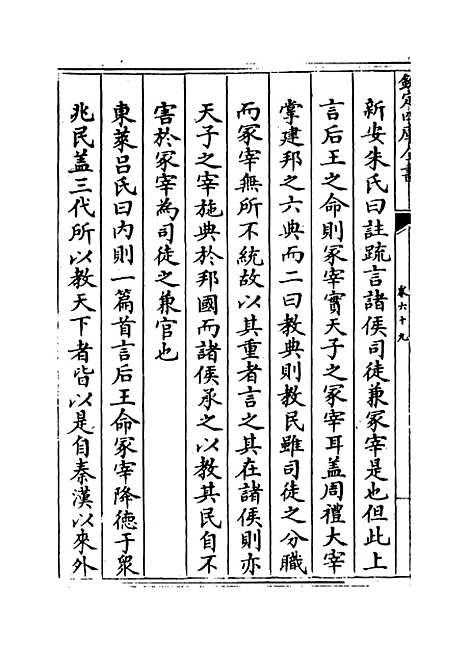 欽定四庫全書
卷六十九
新安朱氏曰註疏言諸侯司徒兼冢宰是也但此上
言后王之命則冢宰實天子之冢宰耳盖周禮大宰
掌建邦之六典而二曰教典則教民雖司徒之分職
而冢宰無所不統故以其重者言之其在諸侯則亦
天子之宰施典於邦國而諸侯承之以教其民自不
害於冢宰為司徒之兼官也
東萊吕氏曰内則一篇首言后王命冢宰降徳于衆
兆民盖三代所以教天下者皆以是自秦漢以來外